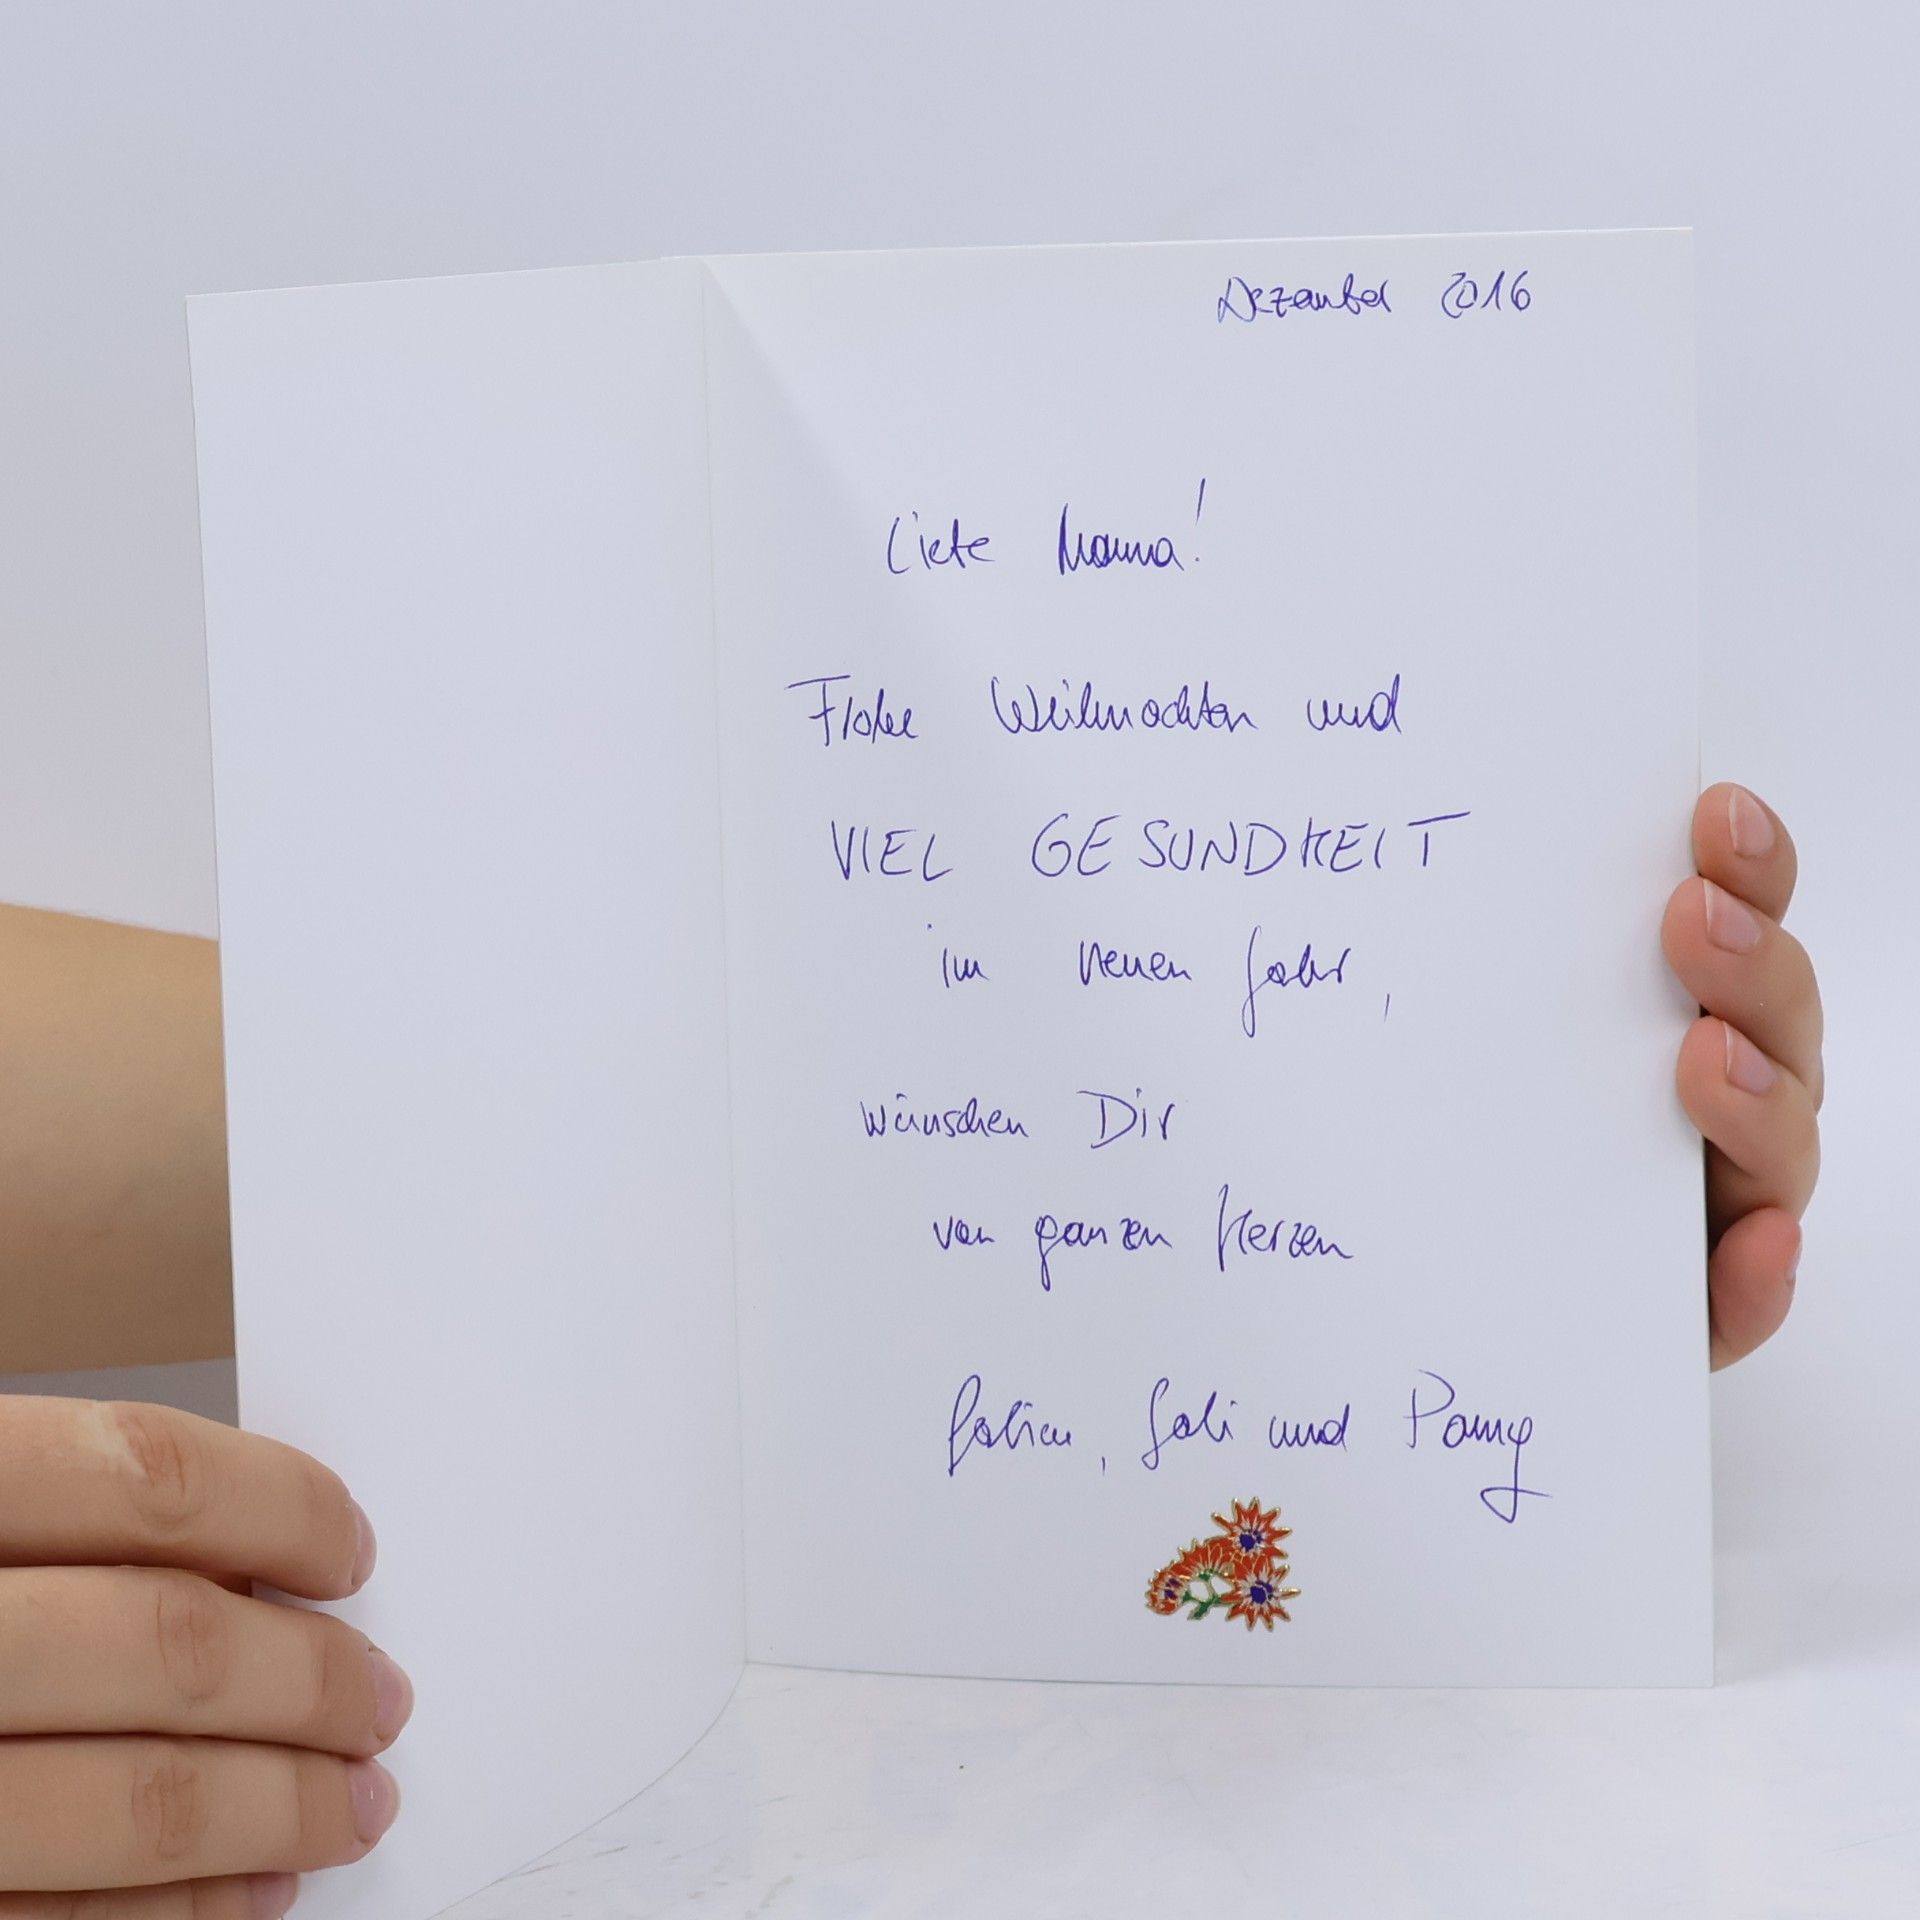 Dezember 2016
Liebe Mama!
Frohe Weihnachten und
VIEL GESUNDHEIT
im neuen Jahr,
wünschen Dir
von ganzen Herzen
und